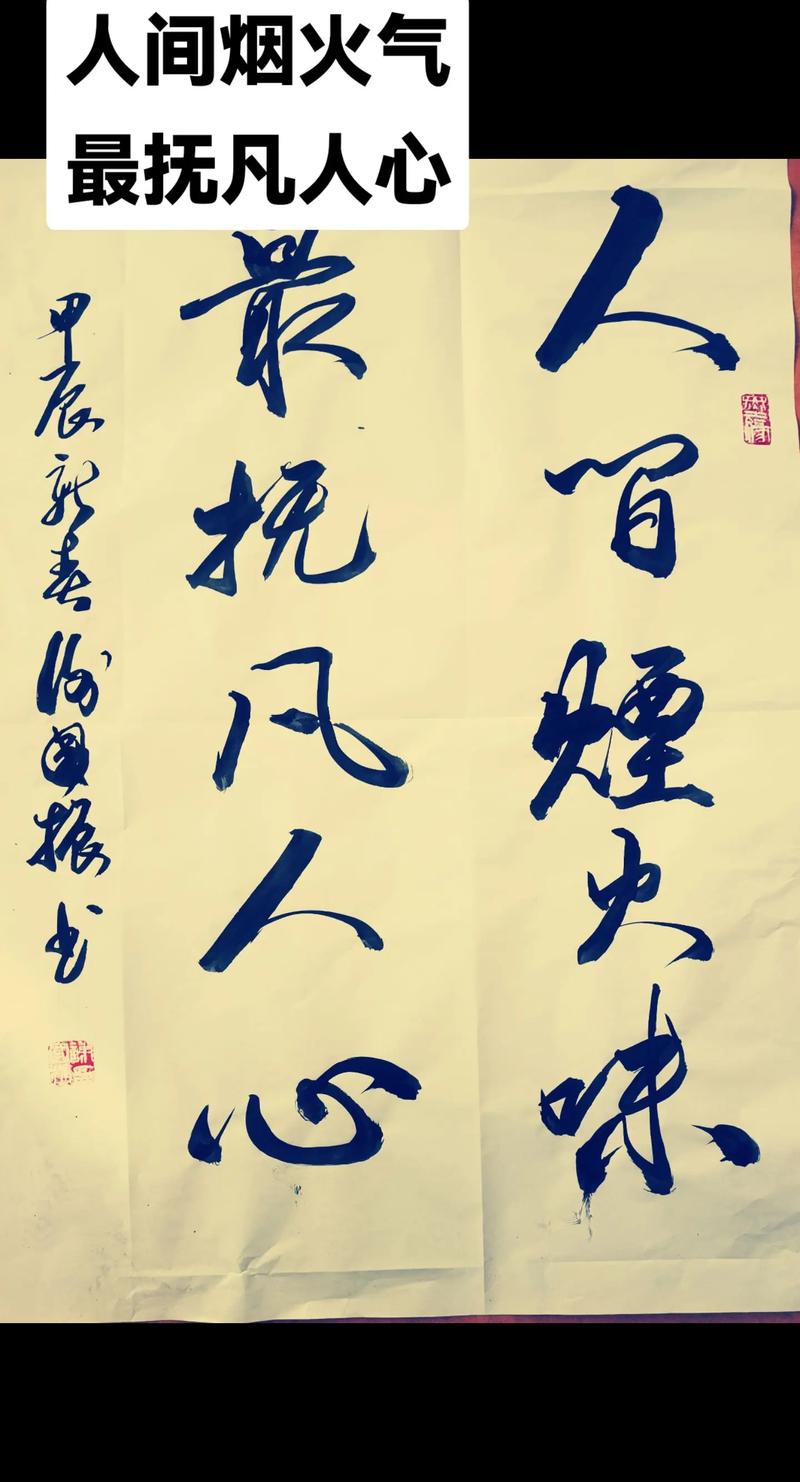 人间烟火气
最抚凡人心
人间煙火味
最抚凡人心
甲辰新春谢国振书